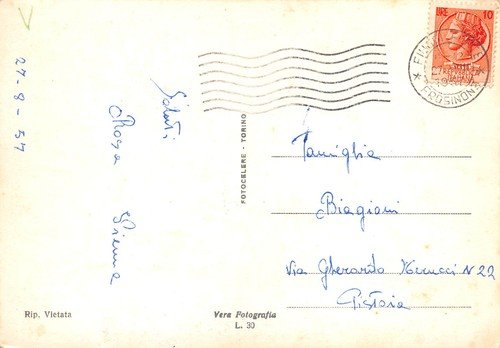 27-8-57
Saluti
Rosa
FOTOCELERE - TORINO
Rip. Vietata
Vera Fotografia
L. 30
LIRE 10
FROSINONE
Famiglia
Biagioni
Via Gherardo Nerucci N 22
Pistoia